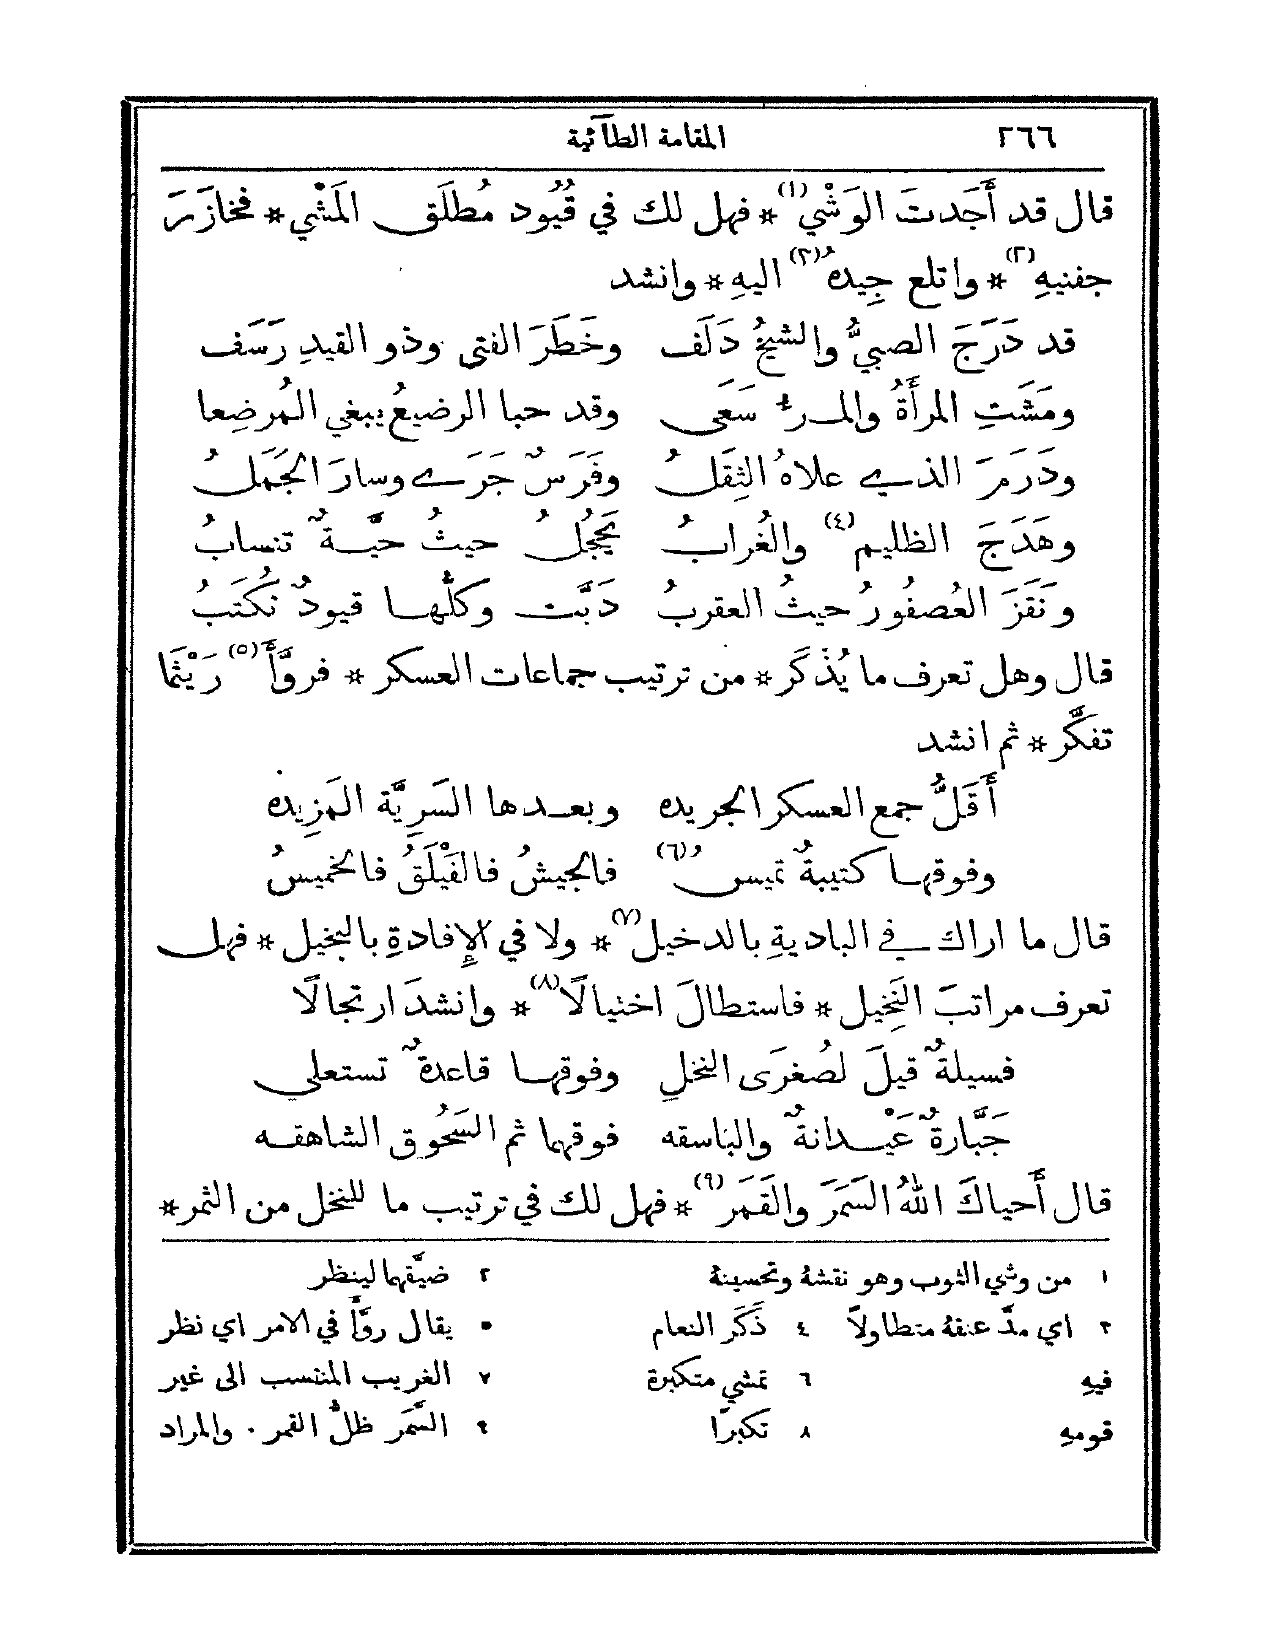 ٢٦٦ المقامة الطآئية
قال قد أَجَدتَ الوَشْيَ(١) * فهل لك في قُيُود مُطلَق المَشْي * فتخازَرَ
جفنيهِ(٢) * واتلع جِيدهُ(٣) اليهِ * وانشد
قد دَرَجَ الصبيُّ والشيخُ دَلَف وخَطَرَ الفتى وذو القيدِ رَسَف
ومَشَتِ المرأَةُ والمرءُ سَعَى وقد حبا الرضيعُ يبغي المُرضِعا
ودَرَمَ الذي علاهُ الثِقَلُ وفَرَسٌ جَرَى وسارَ الجَمَلُ
وهَدَجَ الظليم(٤) والغُرابُ يَحجُلُ حيثُ حيَّةٌ تنسابُ
ونَقَزَ العُصفورُ حيثُ العقربُ دَبَّت وكلُّها قيودٌ تُكتَبُ
قال وهل تعرف ما يُذْكَر * من ترتيب جماعات العسكر * فروَّأَ(٥) رَيْثَما
تفكَّر * ثم انشد
أَقَلُّ جمع العسكر الجريده وبعدها السَرِيَّة المَزِيده
وفوقها كتيبةٌ تميسُ(٦) فالجيشُ فالفَيْلَقُ فالخميسُ
قال ما اراك في البادية بالدخيل(٧) * ولا في الإِفادةِ بالبخيل * فهل
تعرف مراتبَ النَخِيل * فاستطالَ اختيالًا(٨) * وانشدَ ارتجالًا
فسيلةٌ قيلَ لصُغرَى النخلِ وفوقها قاعدةٌ تستعلي
جَبَّارةٌ عَيْدانةٌ والباسقه فوقها ثم السَحُوق الشاهقه
قال أَحياكَ اللهُ السَمَرَ والقَمَر(٩) * فهل لك في ترتيب ما للنخل من الثمر *
١ من وشي الثوب وهو نقشهُ وتحسينهُ ٢ ضيَّقهما لينظر
٣ اي مدَّ عنقهُ متطاولًا ٤ ذَكَر النعام ٥ يقال روَّأَ في الامر اي نظر
فيهِ ٦ تمشي متكبرة ٧ الغريب المنتسب الى غير
قومهِ ٨ تكبرًا ٩ السَّمَر ظلُّ القمر . والمراد